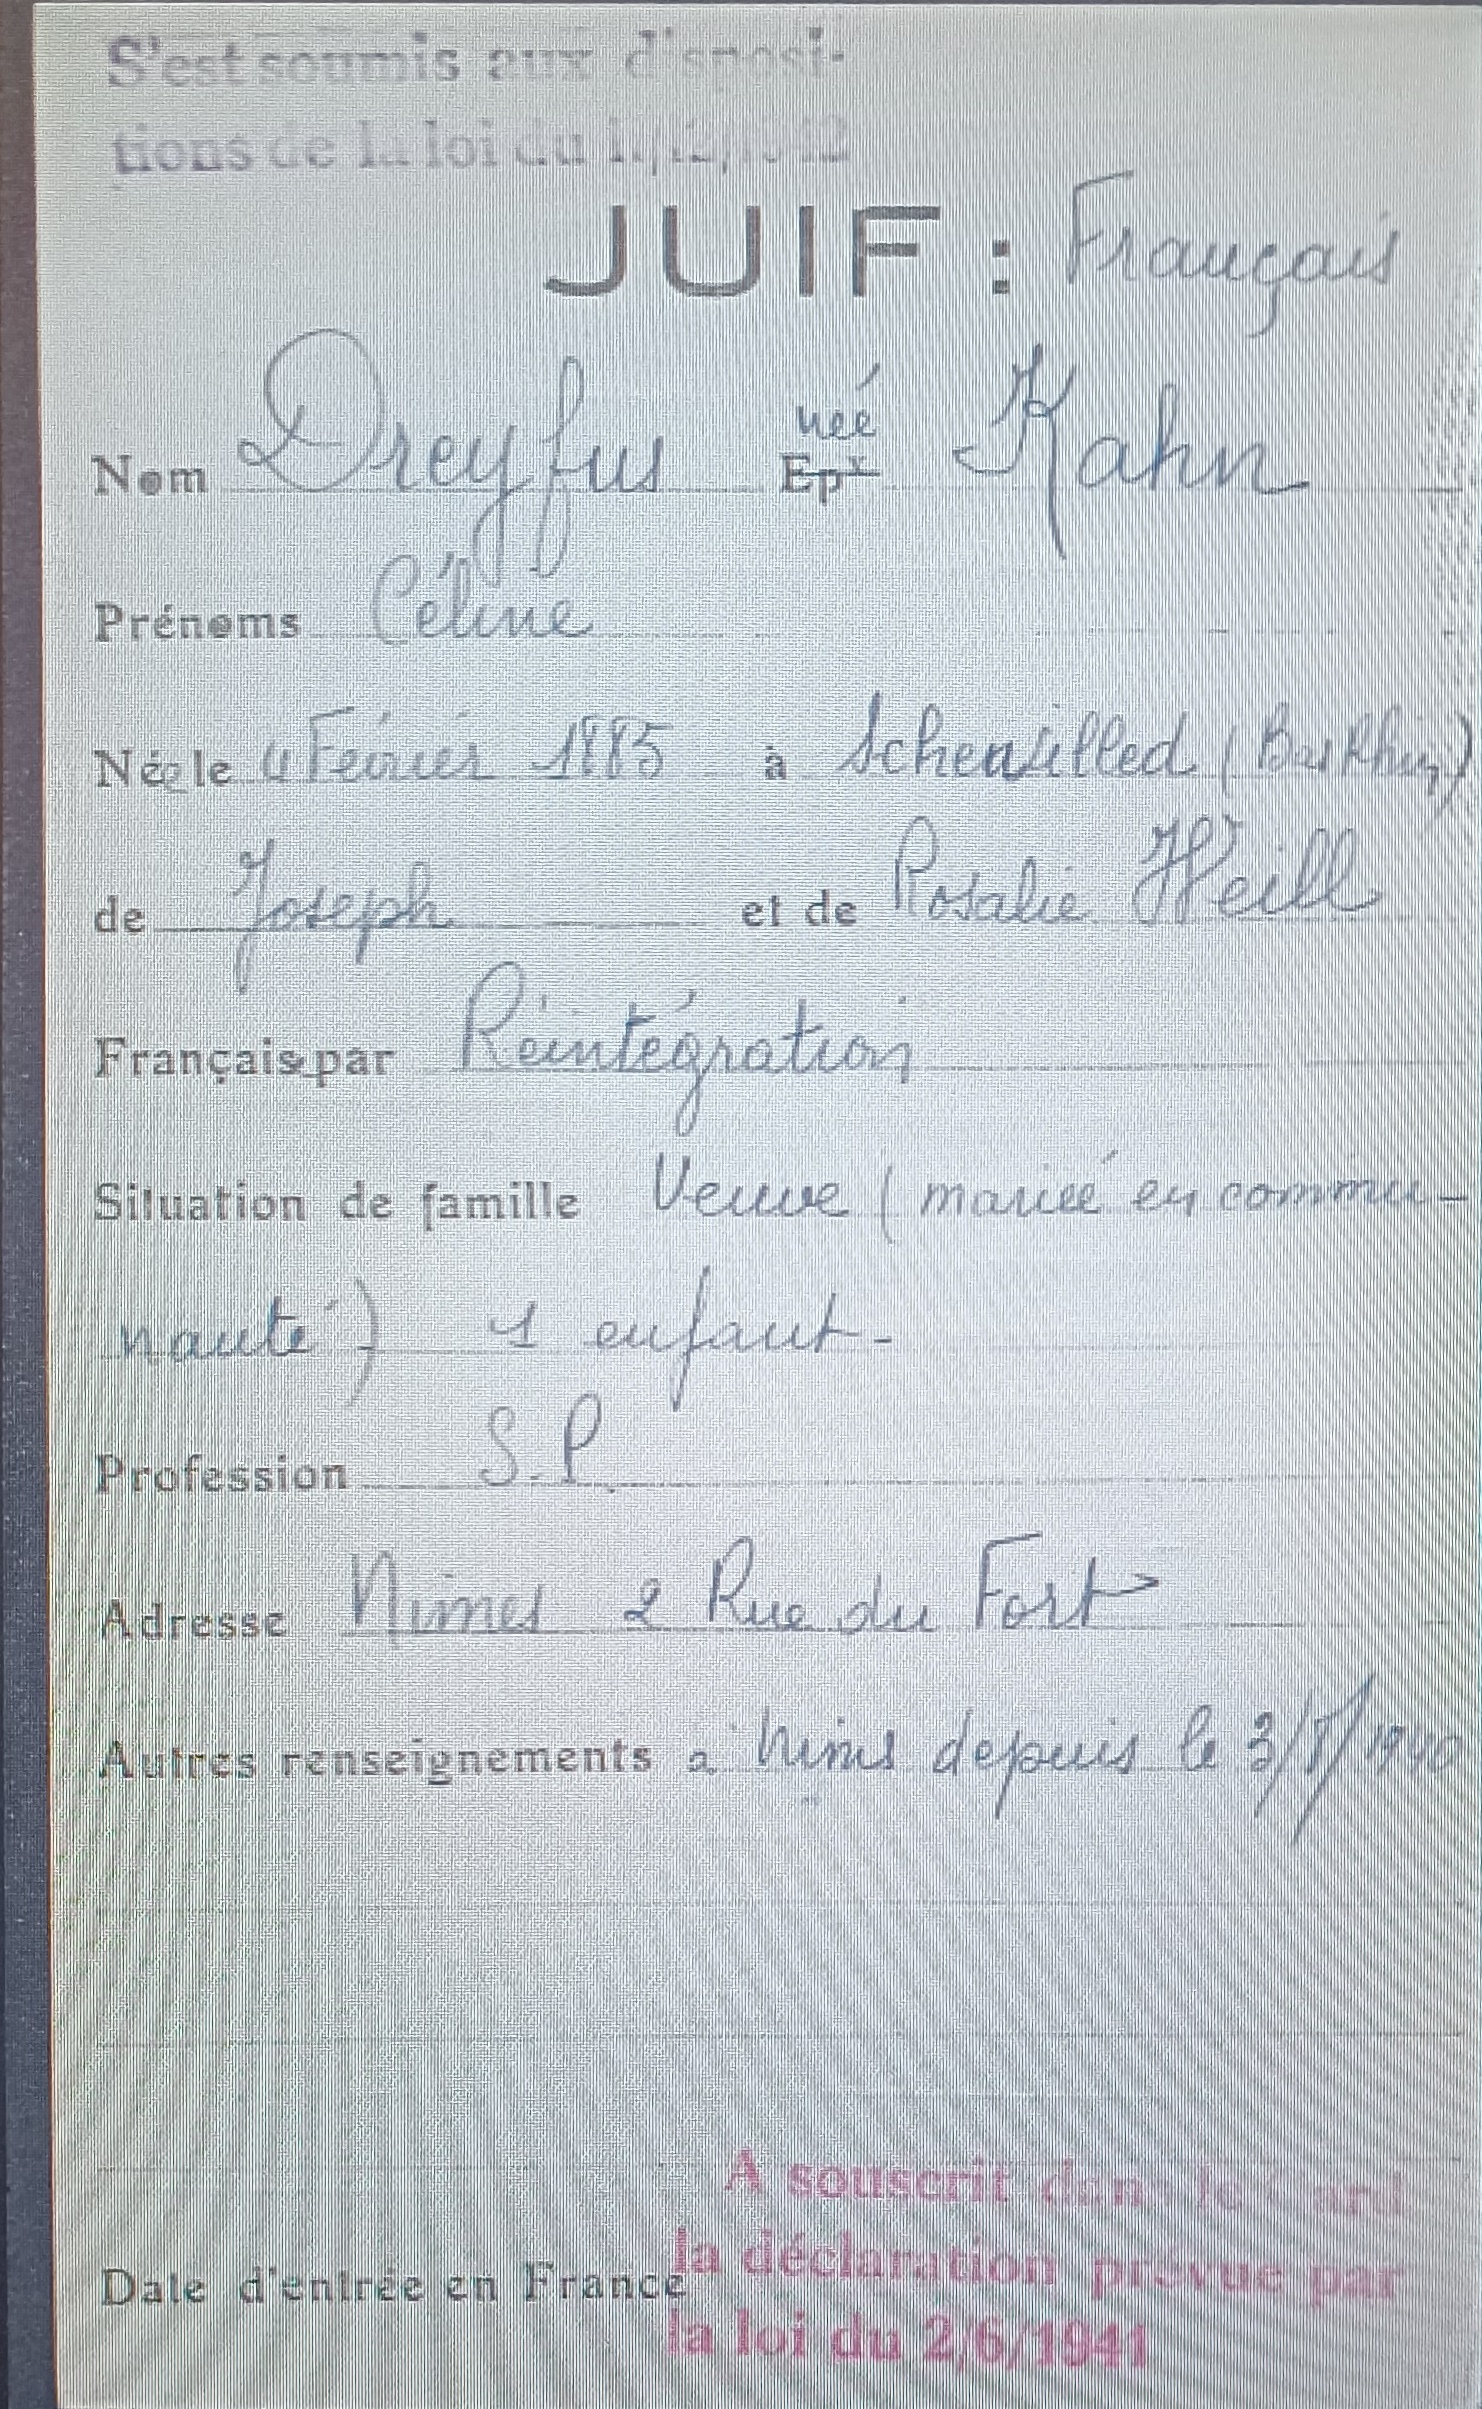 S'est soumis aux disposi-
tions de la loi du
JUIF : Français
Nom Dreyfus née Epx Kahn
Prénoms Céline
Née le 4 Février 1885 à (Bas Rhin)
de Joseph et de Rosalie Weill
Français par Réintégration
Situation de famille Veuve (mariée en commu-
nauté) 1 enfant-
Profession S.P.
Adresse Nimes 2 Rue du Fort
Autres renseignements a Nimes depuis le
A souscrit dans le Gard
la déclaration prévue par
Date d'entrée en France
la loi du 2/6/1941